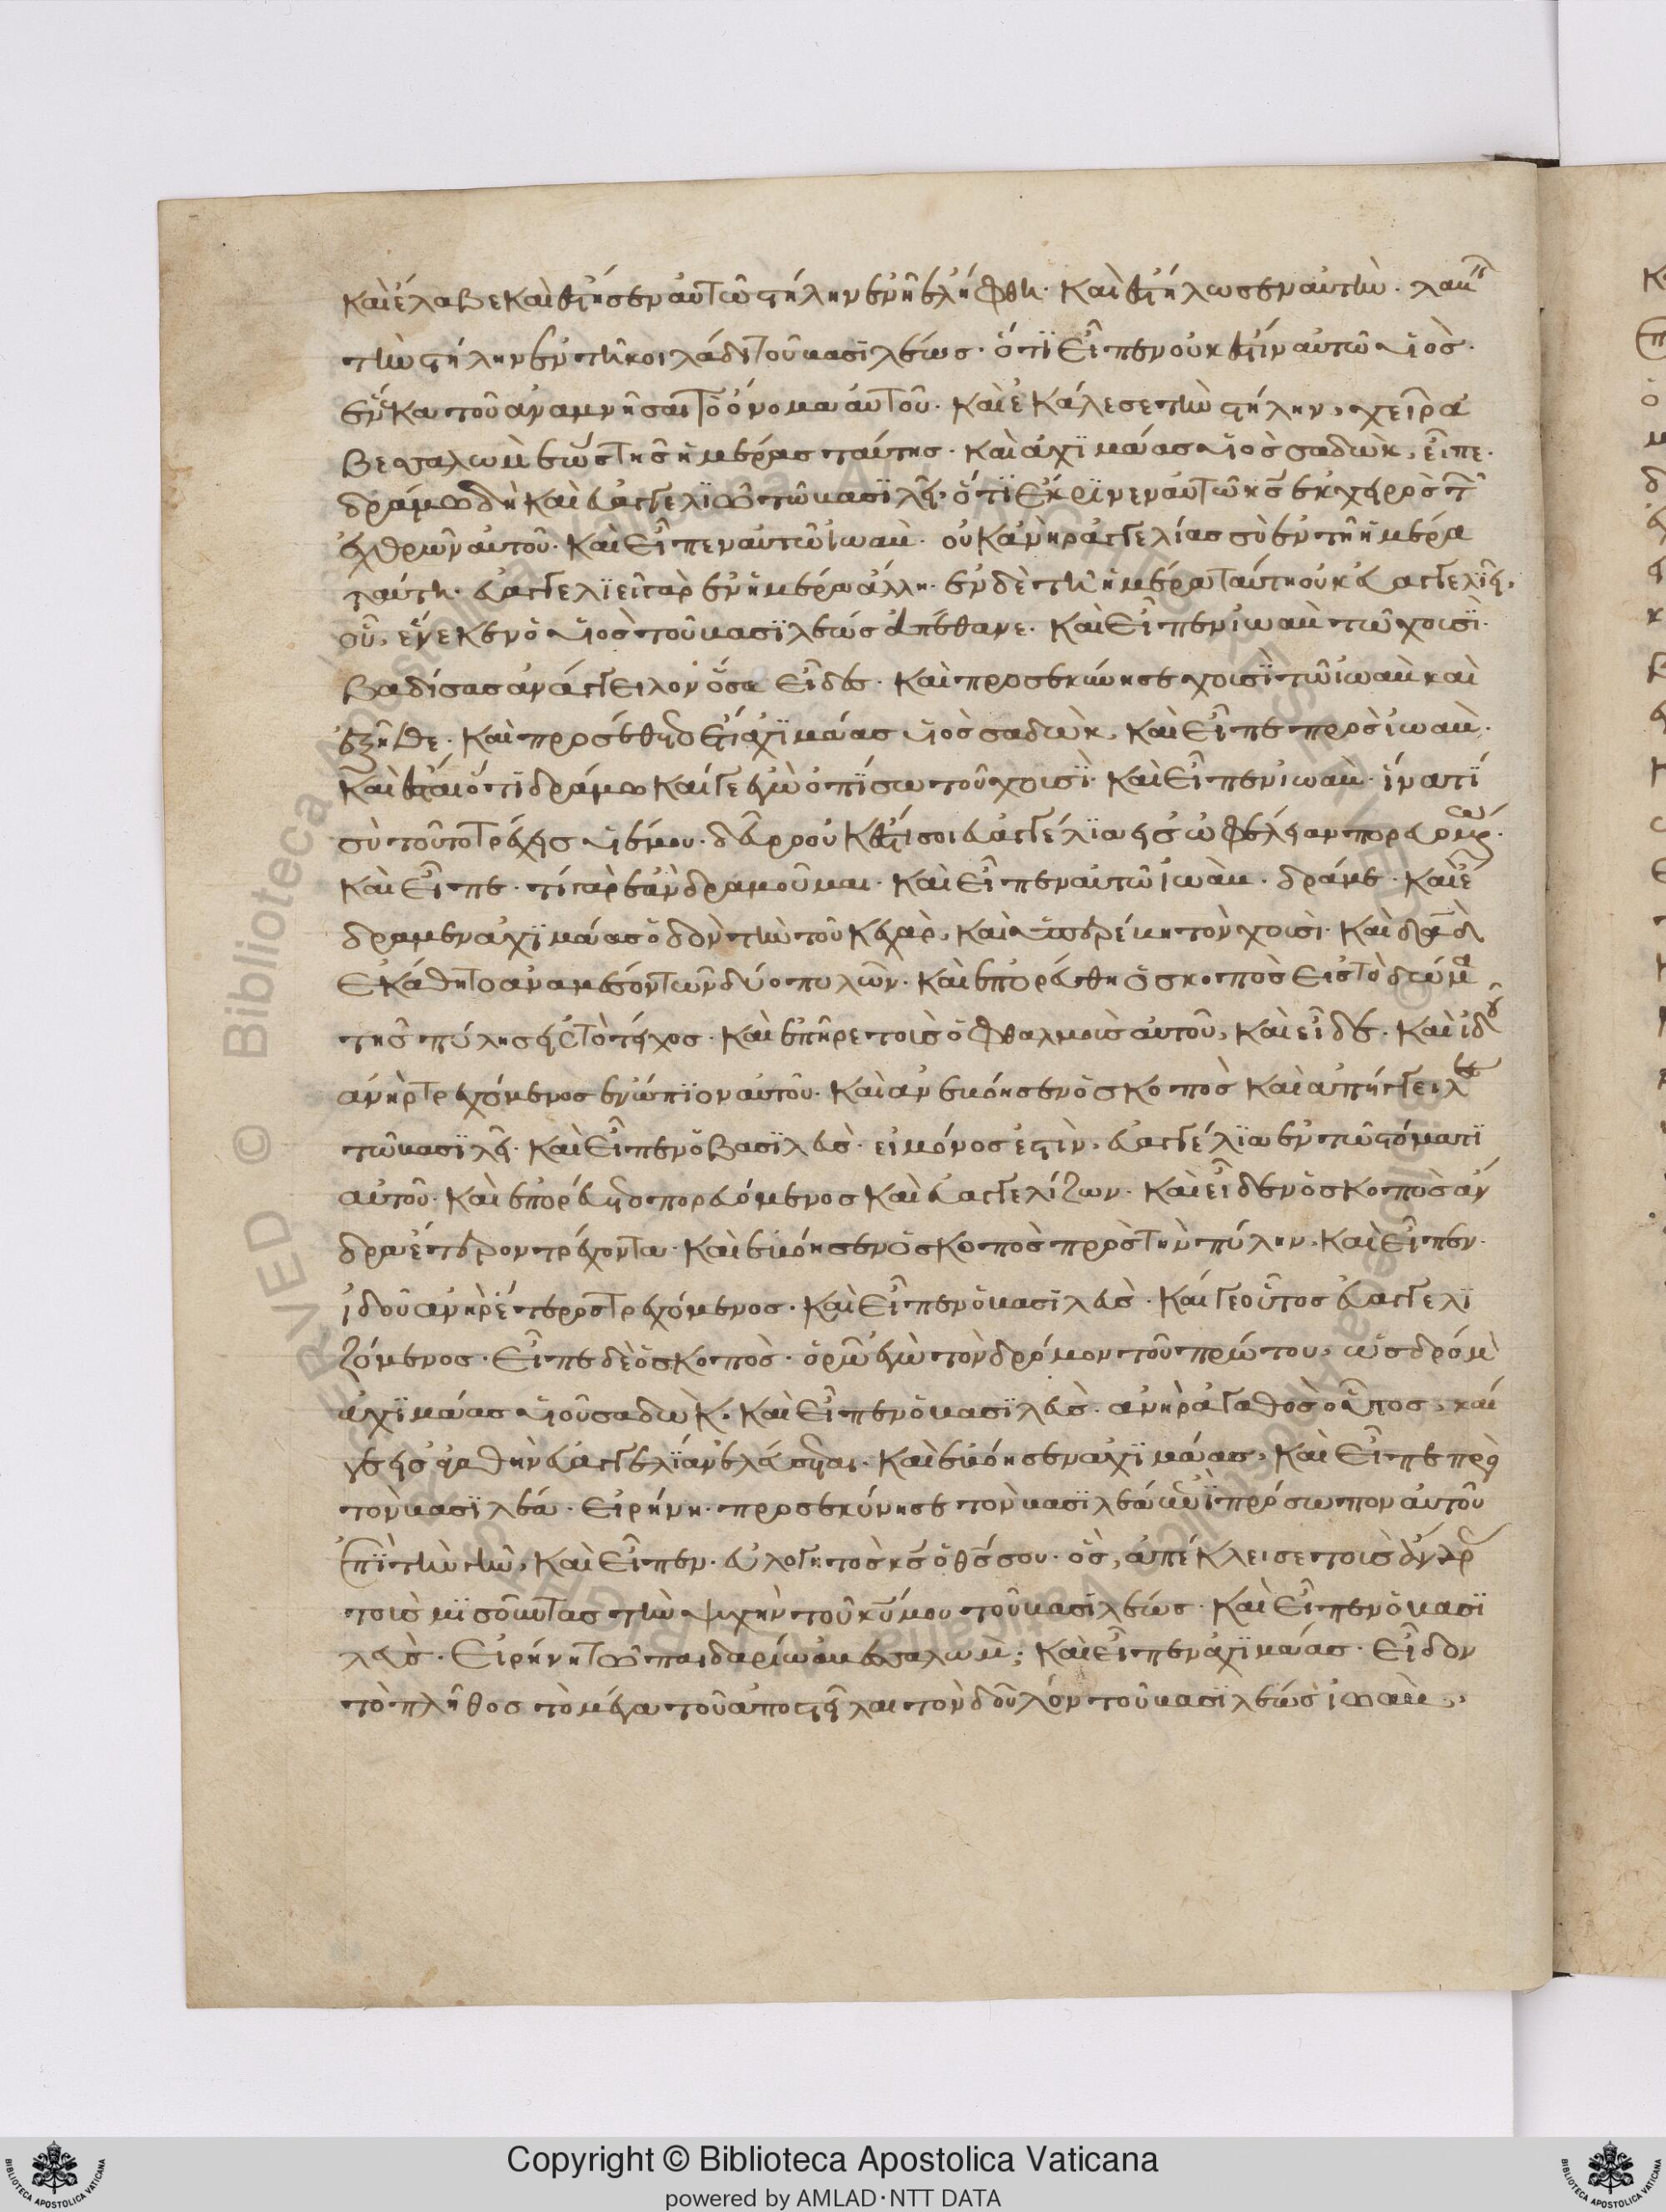 καὶ ἔλαβε καὶ ἔστησεν αὐτῶ στήλην ἐν ἧ ἐλήφθη. καὶ ἐστήλωσεν αὐτὴν. λαβεῖν
τὴν στήλην ἐν τῆ κοιλάδι τοῦ βασιλέως. ὅτι εἶπεν οὐκ ἔστιν αὐτῶ υἱὸς.
ἕνεκα τοῦ ἀναμνῆσαι τὸ ὄνομα αὐτοῦ. καὶ ἐκάλεσε τὴν στήλην, χεῖρα
βεσαλωμ ἕως τῆς ἡμέρας ταύτης. καὶ ἀχιμάας υἱὸς σαδὼκ, εἶπε.
δράμω δὴ καὶ εὐαγγελιῶ τῶ βασιλεῖ. ὅτι ἔκρινεν αὐτῶ κς ἐκ χειρὸς τῶν
ἐχθρῶν αὐτοῦ. καὶ εἶπεν αὐτῶ ἰωαβ. οὐκ ἀνὴρ εὐαγγελίας σὺ ἐν τῆ ἡμέρα
ταύτη. εὐαγγελιεῖ γὰρ ἐν ἡμέρα ἄλλη. ἐν δὲ τῆ ἡμέρα ταύτη οὐκ εὐαγγελιεῖ,
οὗ, ἕνεκεν ὁ υἱὸς τοῦ βασιλέως ἀπέθανε. καὶ εἶπεν ἰωαβ τῶ χουσὶ.
βαδίσας ἀνάγγειλον ὅσα εἶδες. καὶ προσεκύνησε χουσὶ τῶ ἰωαβ καὶ
ἐξῆλθε. καὶ προσέθετο ἔτι ἀχιμάας υἱὸς σαδὼκ, καὶ εἶπε πρὸς ἰωαβ.
καὶ ἔσται ὅτι δράμω καίγε ἐγὼ ὀπίσω τοῦ χουσὶ. καὶ εἶπεν ἰωαβ. ἵνα τί
σὺ τοῦτο τρέχεις υἱέ μου. δεῦρο οὐκ ἔστι σοι εὐαγγελία εἰς ὠφέλειαν πορευομένω.
καὶ εἶπε. τί γὰρ ἐὰν δραμοῦμαι. καὶ εἶπεν αὐτῶ ἰωὰβ. δράμε. καὶ ἔ
δραμεν ἀχιμάας ὁδὸν τὴν τοῦ κεχαρ, καὶ ὑπερέβη τὸν χουσὶ. καὶ δαδ
ἐκάθητο ἀναμέσον τῶν δύο πυλῶν. καὶ ἐπορεύθη ὁ σκοπὸς εἰς τὸ δῶμα
τῆς πύλης εἰς τὸ τεῖχος. καὶ ἐπῆρε τοῖς ὀφθαλμοῖς αὐτοῦ, καὶ εἶδε. καὶ ἰδοὺ
ἀνὴρ τρεχόμενος ἐνώπιον αὐτοῦ. καὶ ἀνεβόησεν ὁ σκοπὸς καὶ ἀπήγγειλε
τῶ βασιλεῖ. καὶ εἶπεν ὁ βασιλεὺς. εἰ μόνος ἐστὶν, εὐαγγέλια ἐν τῶ στόματι
αὐτοῦ. καὶ ἐπορεύετο πορευόμενος καὶ εὐαγγελίζων. καὶ εἶδεν ὁ σκοπὸς ἄν
δρα ἕτερον τρέχοντα. καὶ ἐβόησεν ὁ σκοπὸς πρὸς τὴν πύλην, καὶ εἶπεν.
ἰδοῦ ἀνὴρ ἕτερος τρεχόμενος. καὶ εἶπεν ὁ βασιλεὺς. καίγε οὗτος εὐαγγελι
ζόμενος. εἶπε δὲ ὁ σκοπὸς. ὁρῶ ἐγὼ τὸν δρόμον τοῦ πρώτου, ὡς δρόμον
ἀχιμάας υἱοῦ σαδὼκ. καὶ εἶπεν ὁ βασιλεὺς. ἀνὴρ ἀγαθὸς οὗτος, καί
γε εἰς ἀγαθὴν εὐαγγελίαν ἐλεύσεται. καὶ ἐβόησεν ἀχιμάας, καὶ εἶπε πρὸς
τὸν βασιλέα. εἰρήνη. προσεκύνησε τὸν βασιλέα ἐπὶ πρόσωπον αὐτοῦ
ἐπὶ τὴν γῆν, καὶ εἶπεν. εὐλογητὸς κς ὁ θς σου. ὃς, ἀπέκλεισε τοῖς ἄνδρας
τοῖς μισοῦντας τὴν ψυχὴν τοῦ κυ μου τοῦ βασιλέως. καὶ εἶπεν ὁ βασι
λεὺς. εἰρήνη τῶ παιδαρίω ἀβεσαλωμ; καὶ εἶπεν ἀχιμάας. εἶδον
τὸ πλῆθος τὸ μέγα τοῦ ἀποστεῖλαι τὸν δοῦλον τοῦ βασιλέως ἰωαβ,
Copyright © Biblioteca Apostolica Vaticana
powered by AMLAD·NTT DATA